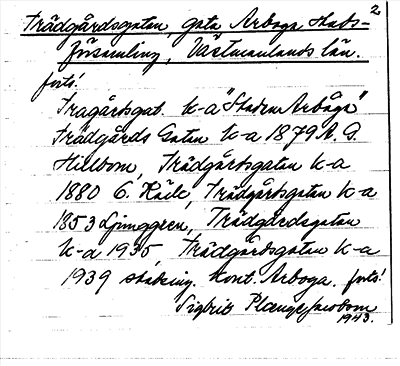 2
Trädgårdsgatan, gata Arboga Stads-
församling, Västmanlands län.
forts!
Tragårdsgat. k-a "Staden Arboga"
Trädgårds Gatan k-a 1879 A. G.
Hillbom, Trädgårdsgatan k-a
1880 G. Käile, Trädgårdsgatan k-a
1853 Ljunggren, Trädgårdsgatan
k-a 1935, Trädgårdsgatan k-a
1939 stadsing. kont. Arboga. forts!
Sigbrit Plænge Jacobson
1943.